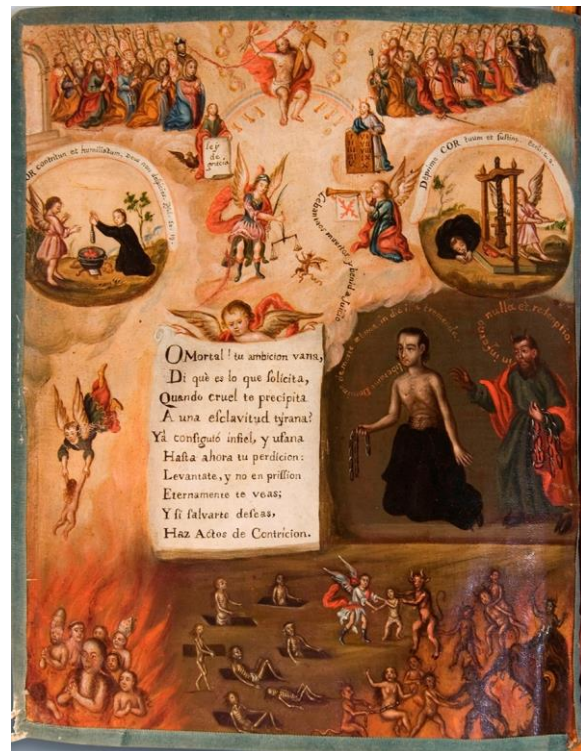 COR contritum et humiliatum, Deus non despicies. Psal. 50. 19.
ley
de
gracia
Deprime COR tuum et sustine. Eccli. 2. 2.
Lebantaos, muertos, y benid a Juicio
in inferno nulla est redemptio
O Mortal! tu ambicion vana,
Di què es lo que solicita,
Quando cruel te precipita
A una esclavitud tyrana?
Ya consiguió infiel, y ufana
Hasta ahora tu perdicion:
Levantate, y no en prission
Eternamente te veas;
Y si salvarte deseas,
Haz Actos de Contricion.